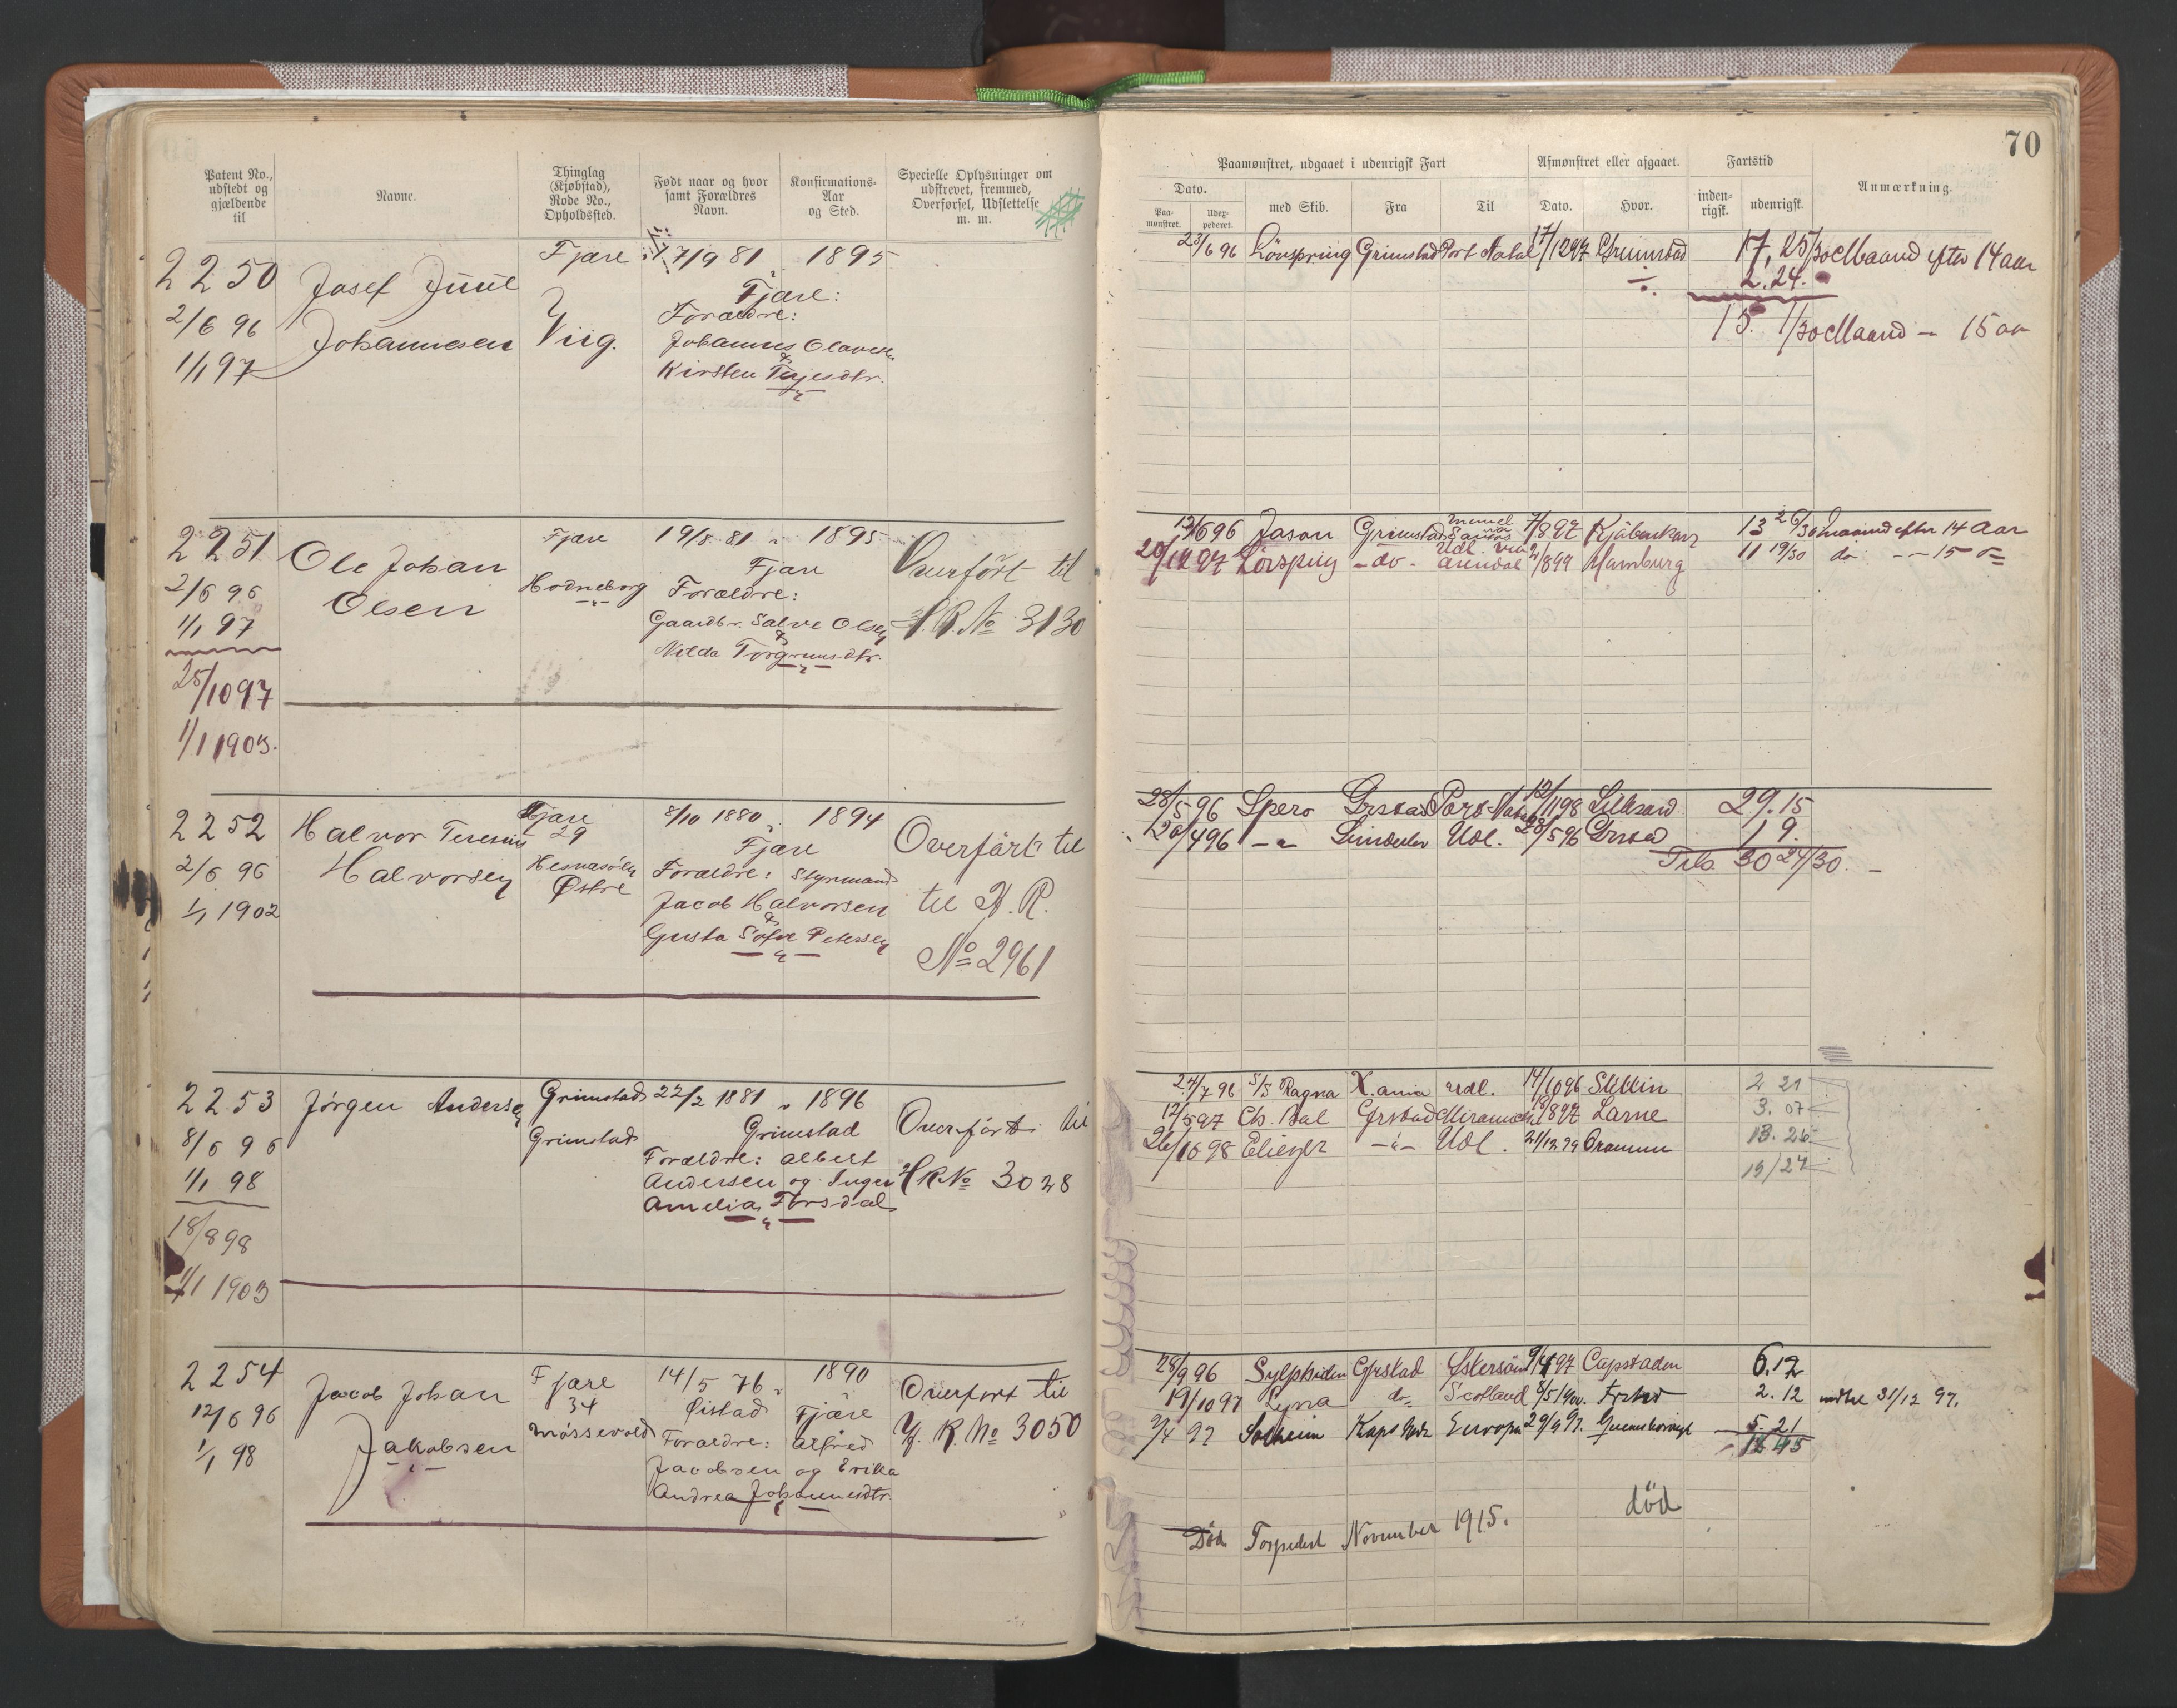 70
Patent No., udstedt og gjældende til
Navne.
Thinglag (Kjøbstad), Rode No., Opholdssted.
Født naar og hvor samt Forældres Navn.
Konfirmations-Aar og Sted.
Specielle Oplysninger om udskrevet, fremmød, Overførsel, Udslettelse m. m.
Paamønstret, udgaaet i udenrigsk Fart
Afmønstret eller afgaaet.
Fartstid
Anmærkning.
Dato.
Paa-mønstret.
Udex-pederet.
med Skib.
Fra
Til
Dato.
Hvor.
inden-rigsk.
udenrigsk.
2250
2/6 96
1/1 97
Josef Juul
Johannesen
Fjære
Viig.
7/9 81 1895
Fjære:
Forældre:
Johannes Olavesen
&
Kirsten Terjesdtr.
23/6 96 Lövspring Grimstad Port Natal 17/12 97 Grimstad 17, 25/30 Maaned efter 14 aar
2.24.
15. 1/30 Maaned – 15 aar
2251
2/6 96
1/1 97
25/10 97
1/1 1903.
Ole Johan
Olsen
Fjære
Hodneborg
19/8 81 1895
Fjære
Forældre:
Gaardbr. Salve Olsen
&
Nilda Torgrimsdtr.
Overført til
H.R. No 3130
12/6 96 Jason Grimstad 7/8 97 Kjöbenhavn 13 26/30 maaned efter 14 aar
26/10 97 Lövspring - do - Udl. via Arendal 2/8 99 Hamburg 11 19/30 do – 15 –
2252
2/6 96
1/1 1902
Halvor Teresius
Halvorsen
Fjære
29
Hesnesöen
Østre
8/10 1880 1894
Fjære
Forældre: Styrmand
Jacob Halvorsen
&
Gusta Sofie Petersen
Overført til
til H. R.
No 2961
28/5 96 Spero Grstad Port Natal 12/1 98 Lillesand 29.15
20/4 96 – " – Udl. 28/5 96 Grstad 1 9.
Tils 30 24/30.
2253
8/6 96
1/1 98
18/8 98
1/1 1903
Jörgen Andersen
Grimstad
Grimstad
22/2 1881 1896
Grimstad
Forældre: Albert
Andersen og Inger
Amelia Torsdal
Overført til
H R No 3028
24/7 96 S/S Ragna X.ania Udl. 14/10 96 Stettin 2 21
12/5 97 Ch. Bal Grstad Miramichi 18/8 97 Larne 3. 07
26/10 98 Eliezer – " – Udl. 21/12 99 Drammen 13. 26
19/24
2254
12/6 96
1/1 98
Jacob Johan
Jakobsen
Fjære
34
Mössevold
14/5 76 1890
Öistad Fjære
Forældre: Alfred
Jacobsen og Erika
Andrea Johannesdtr.
Overført til
H. R. No 3050
28/9 96 Sylphiden Grstad Østersöen 9/4 97 Capstaden 6.12
19/10 97 Lyna do Scotland 8/5 1900 2. 12 indtil 31/12 97.
9/4 97 Solheim Kapstaden Europa 29/9 97. 5. 21
död
Død Torpedert November 1915.